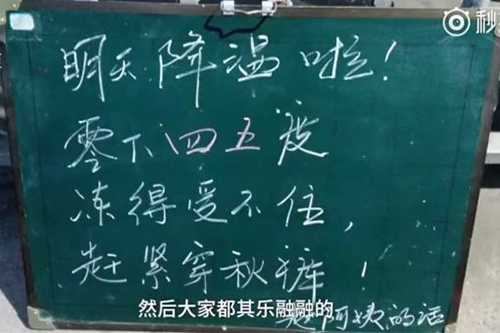 秒
明天降温啦!
零下四五度
冻得受不住,
赶紧穿秋裤!
然后大家都其乐融融的
阿姨的话